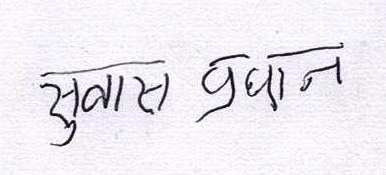 सुवास प्रधान